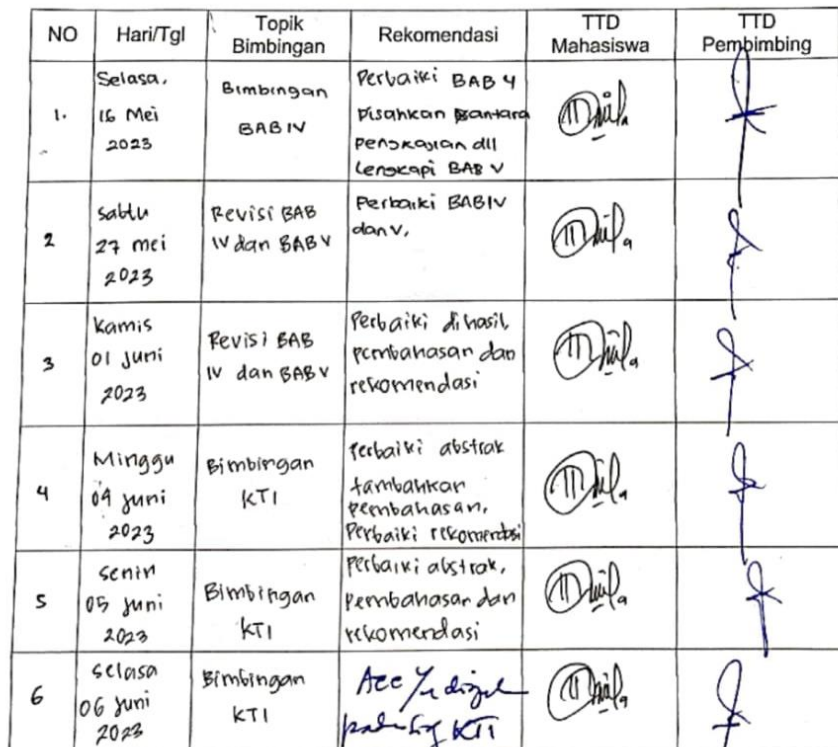 NO Hari/Tgl Topik Bimbingan Rekomendasi TTD Mahasiswa TTD Pembimbing
1. Selasa,
16 Mei
2023
Bimbingan
BAB IV
Perbaiki BAB 4
Pisahkan antara
pengkajian dll
Lengkapi BAB V
2 Sabtu
27 mei
2023
Revisi BAB
IV dan BAB V
Perbaiki BAB IV
dan V,
3 Kamis
01 Juni
2023
Revisi BAB
IV dan BAB V
Perbaiki dihasil,
pembahasan dan
rekomendasi
4 Minggu
04 Juni
2023
Bimbingan
KTI
Perbaiki abstrak
tambahkan
pembahasan,
Perbaiki rekomendasi
5 Senin
05 Juni
2023
Bimbingan
KTI
Perbaiki abstrak,
Pembahasan dan
rekomendasi
6 Selasa
06 Juni
2023
Bimbingan
KTI
Acc
KTI